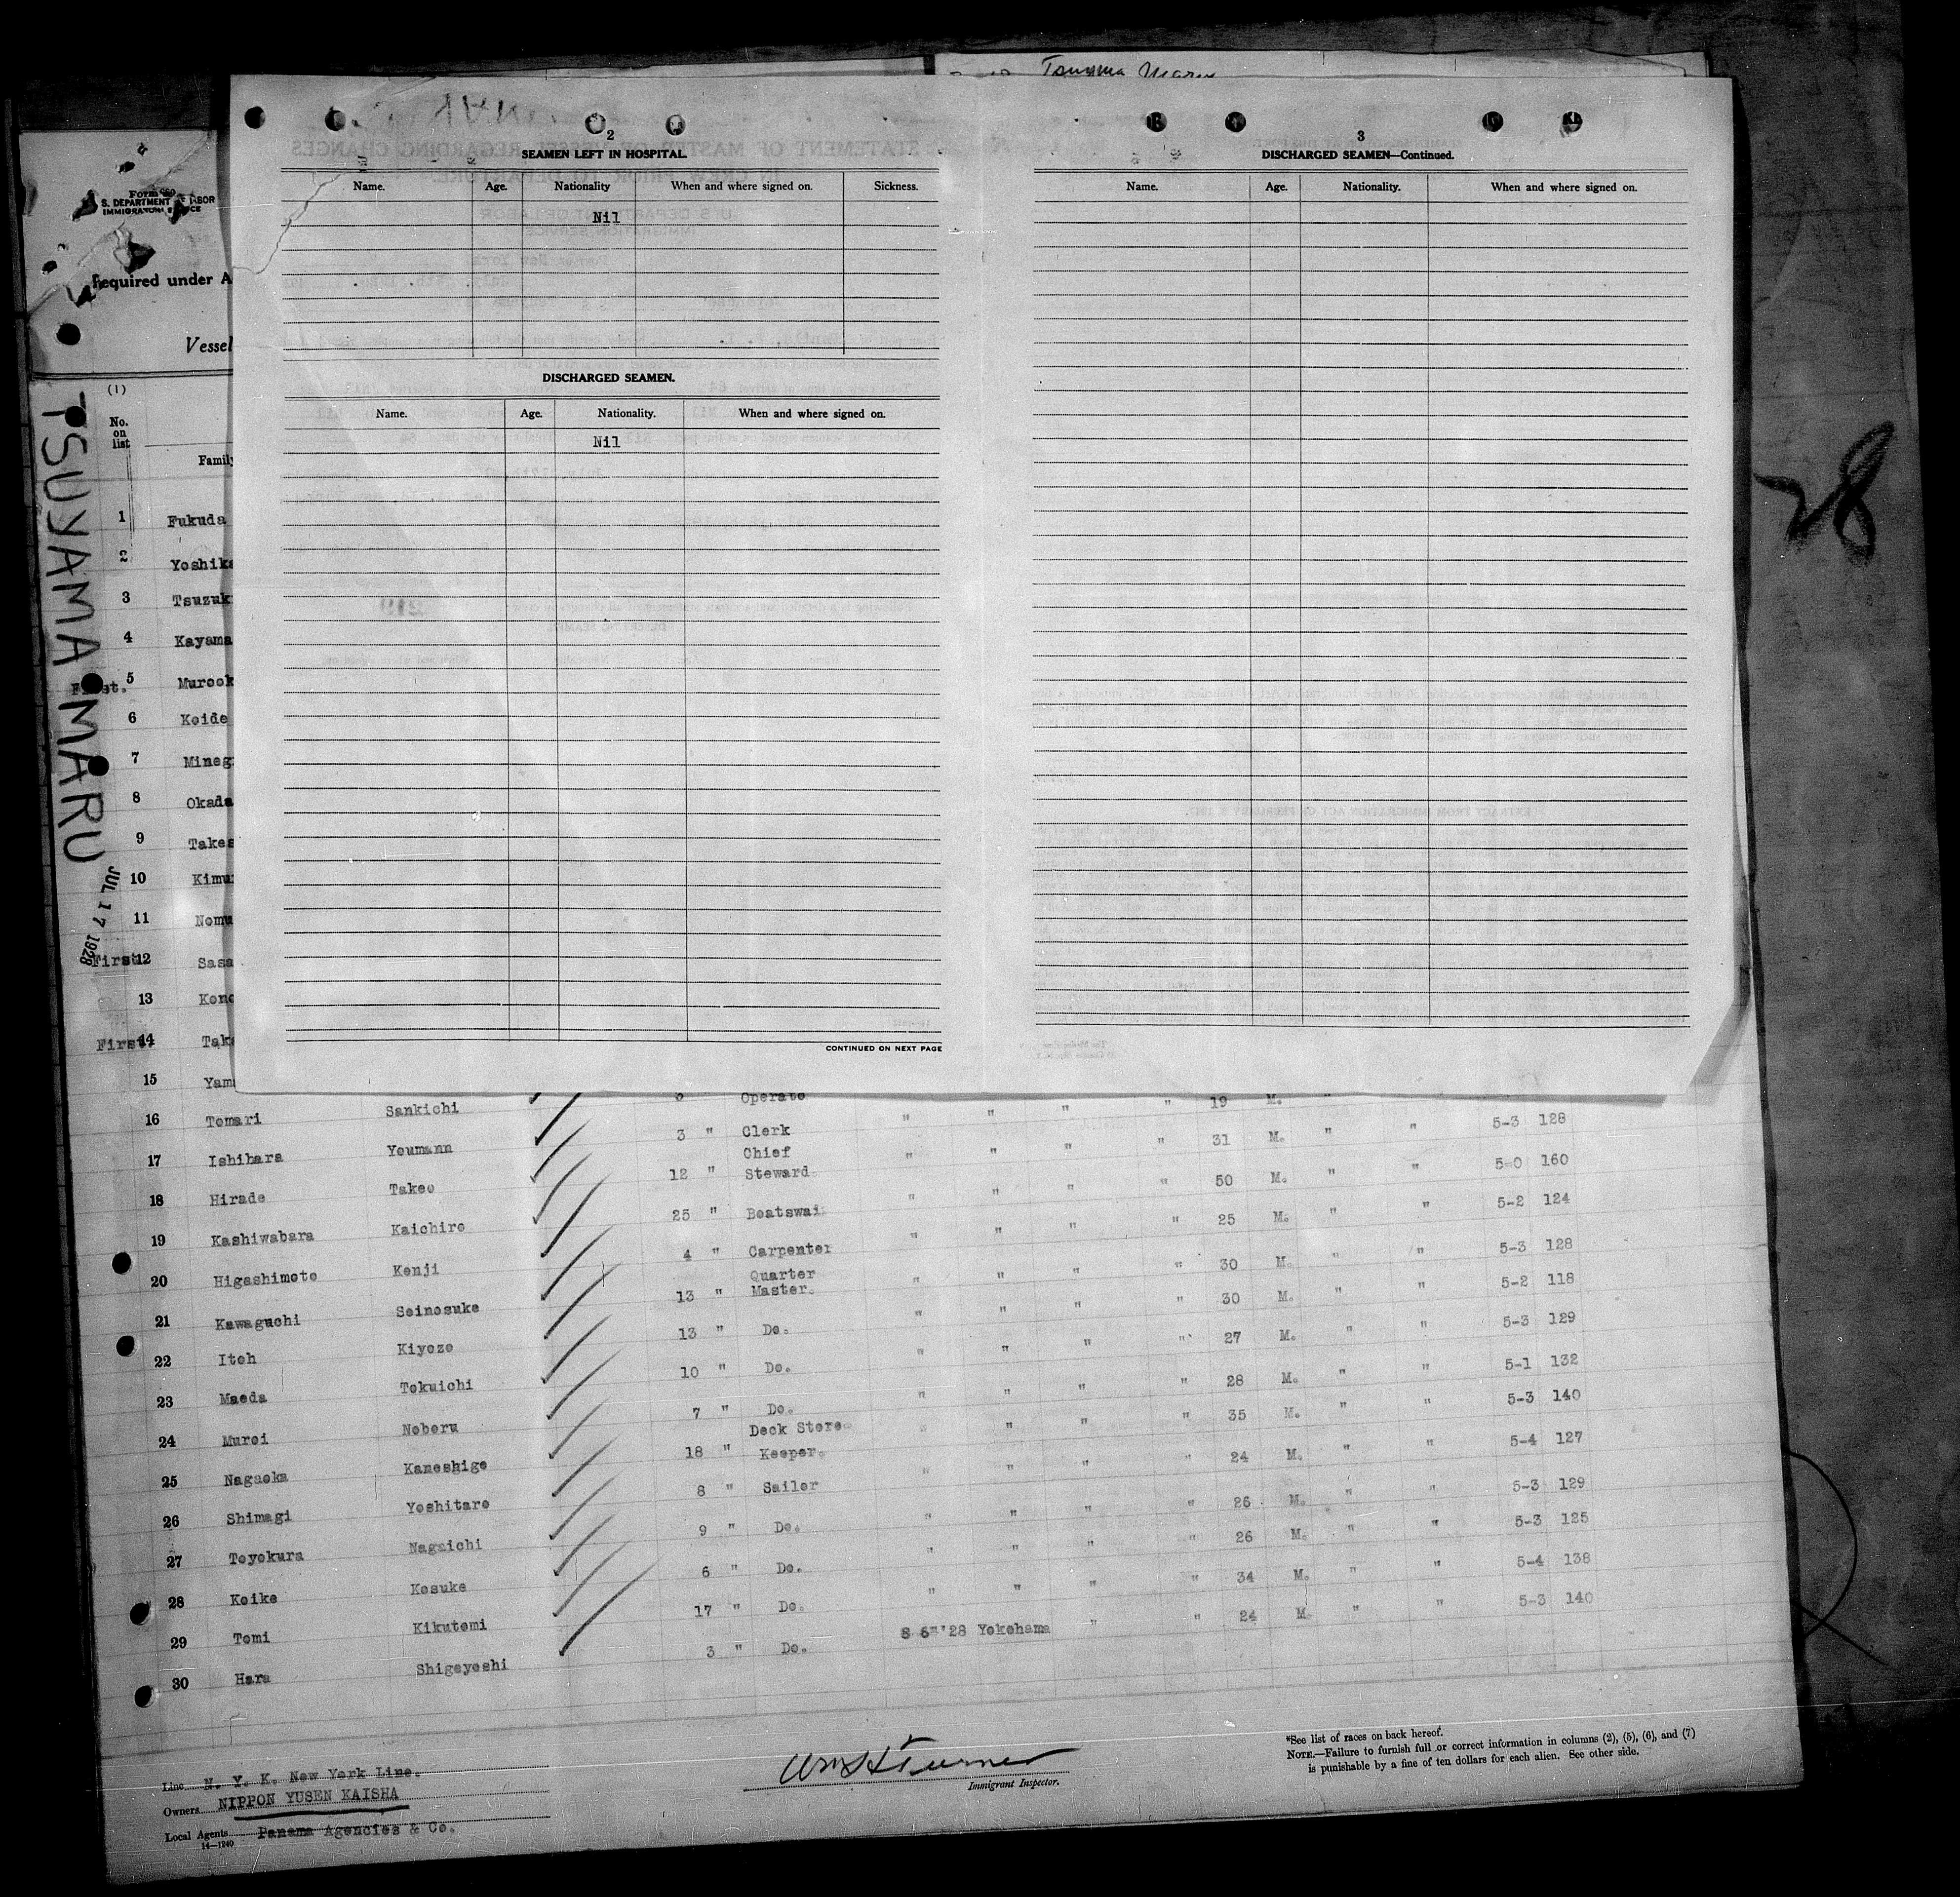 2
SEAMEN LEFT IN HOSPITAL.
Name. Age. Nationality When and where signed on. Sickness.
Nil
DISCHARGED SEAMEN.
Name. Age. Nationality. When and where signed on.
Nil
CONTINUED ON NEXT PAGE
3
DISCHARGED SEAMEN—Continued.
Name. Age. Nationality. When and where signed on.
28
Form 680
S. DEPARTMENT
IMMIGRATION
Required under A
Vessel
(1)
No. on list
Family
TSUYAMA MARU
JUL 17 1928
1 Fukuda
2 Yoshika
3 Tsuzuk
4 Kayama
First. 5 Murook
6 Koide
7 Mineg
8 Okada
9 Takes
10 Kimu
11 Nomu
First 12 Sasa
13 Kono
First 14 Taka
15 Yam
16 Tomari Sankichi Operato 19 M. "
17 Ishihara Youmann 3 " Clerk " " " " 31 M. " " 5-3 128
18 Hirade Takeo 12 " Chief Steward " " " " 50 M. " " 5-0 160
19 Kashiwabara Kaichiro 25 " Boatswai " " " " 25 M. " " 5-2 124
20 Higashimoto Kenji 4 " Carpenter " " " " 30 M. " " 5-3 128
21 Kawaguchi Seinosuke 13 " Quarter Master. " " " " 30 M. " " 5-2 118
22 Itoh Kiyozo 13 " Do. " " " " 27 M. " " 5-3 129
23 Maeda Tokuichi 10 " Do. " " " " 28 M. " " 5-1 132
24 Muroi Noboru 7 " Do. " " " " 35 M. " " 5-3 140
25 Nagaoka Kaneshige 18 " Deck Store Keeper. " " " " 24 M. " " 5-4 127
26 Shimagi Yoshitaro 8 " Sailor " " " " 26 M. " " 5-3 129
27 Toyokura Nagaichi 9 " Do. " " " " 26 M. " " 5-3 125
28 Koike Kosuke 6 " Do. " " " " 34 M. " " 5-4 138
29 Tomi Kikutomi 17 " Do. " " " " 24 M. " " 5-3 140
30 Hara Shigeyoshi 3 " Do. '28 Yokohama "
Line N. Y. K. New York Line.
Owners NIPPON YUSEN KAISHA
Local Agents Panama Agencies & Co.
14—1240
Wm H Turner
Immigrant Inspector.
*See list of races on back hereof.
NOTE.—Failure to furnish full or correct information in columns (2), (5), (6), and (7)
is punishable by a fine of ten dollars for each alien. See other side.